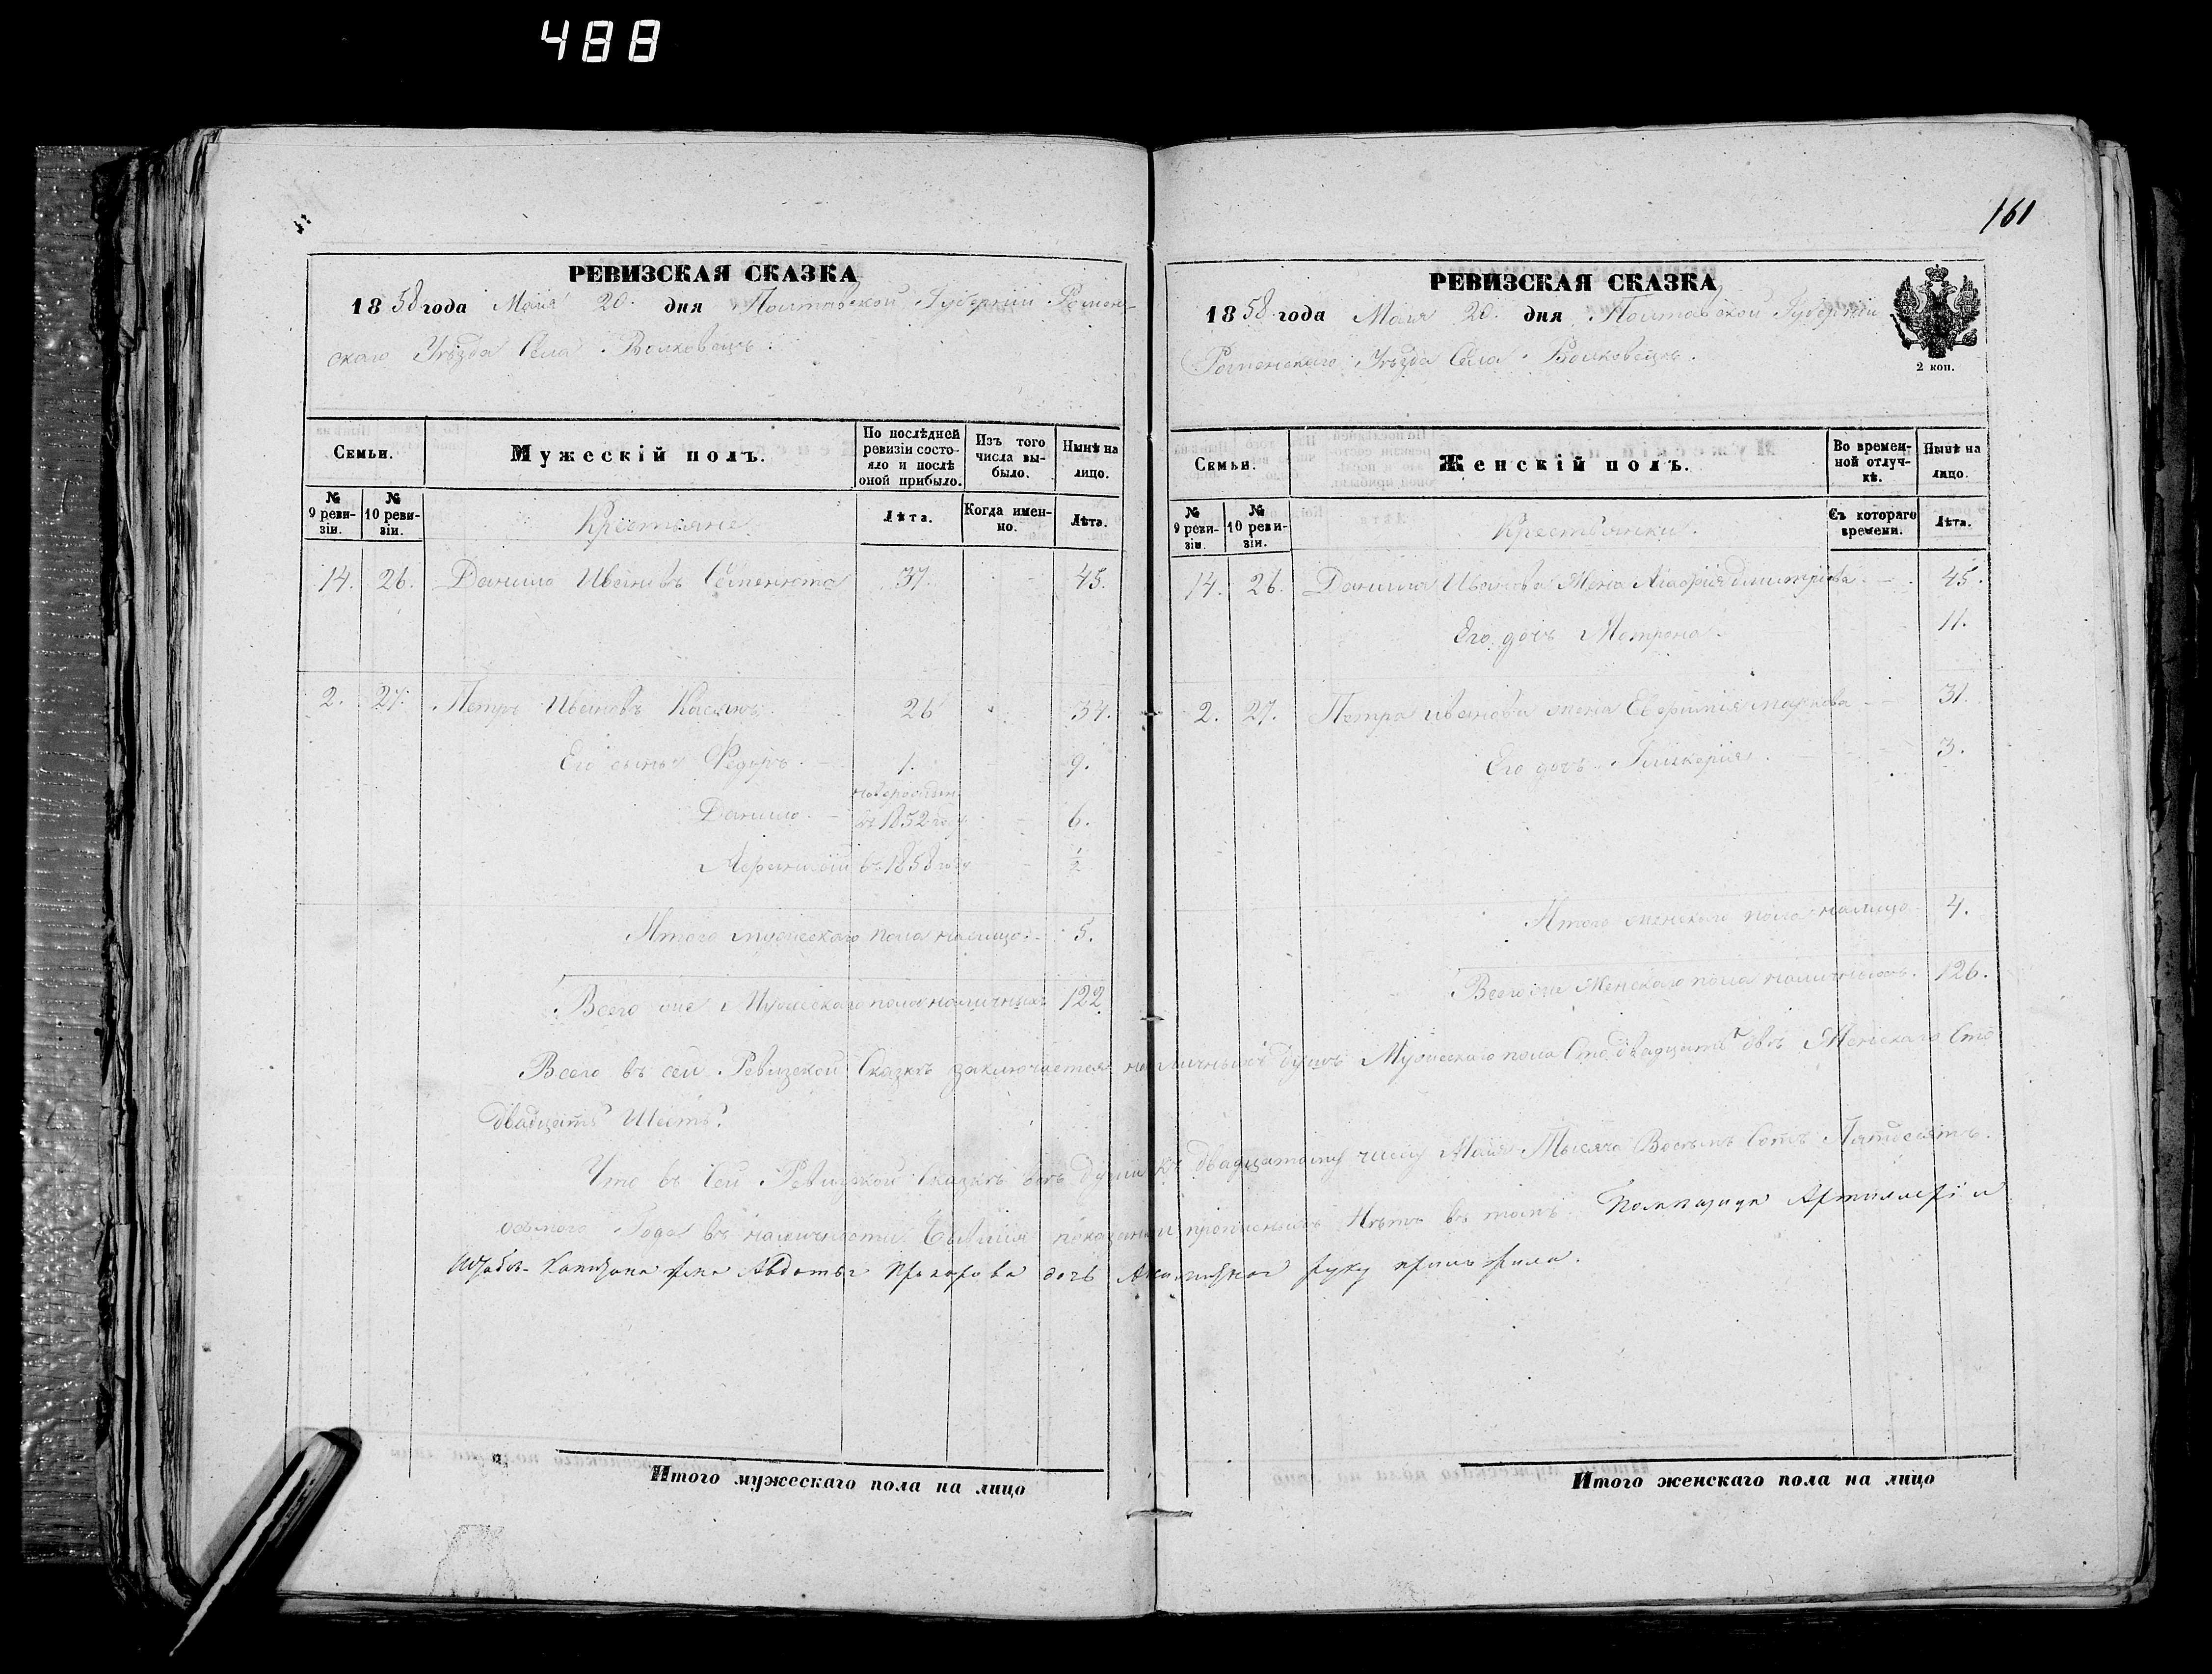 488
161
РЕВИЗСКАЯ СКАЗКА
1858 года Маія 20. дня Полтавской Губерніи Ромен-
скаго Уѣзда Села Волковецъ.
Семьи.
Мужескій полъ.
По послѣдней ревизіи состояло и послѣ оной прибыло.
Изъ того числа выбыло.
Нынѣ на лицо.
№ 9 ревизіи.
№ 10 ревизіи.
Крестьяне
Лѣта.
Когда именно.
Лѣта.
14. 26. Данило Ивановъ 37. 45.
2. 27. Петръ Ивановъ 26 34.
Его сынъ Федоръ 1. 9.
Данило въ 1852 году 6.
въ 1858 году 1/2
Итого мужескаго пола налицо 5.
Всего Мужескаго пола наличныхъ 122.
РЕВИЗСКАЯ СКАЗКА
1858 года Маія 20. дня Полтавской Губерніи
Роменскаго Уѣзда Села Волковецъ.
2 коп.
Семьи.
Женскій полъ.
Во временной отлучкѣ.
Нынѣ на лицо.
№ 9 ревизіи.
№ 10 ревизіи.
Крестьянки.
Съ котораго времени.
Лѣта.
14. 26. Данила Иванова Жена 45.
Его дочь Мотрона 11.
2. 27. Петра Иванова жена Евфимія Маркова 31.
Его дочь Гликерія 3.
Итого женскаго пола налицо 4.
Всего Женскаго пола наличныхъ 126.
Всего въ сей Ревизской Сказкѣ заключается наличныхъ душъ Мужескаго пола Сто двадцать двѣ Женскаго Сто
двадцать Шесть.
Что въ Сей Ревизкой Сказкѣ всѣ души къ двадцатому числу Маія Тысяча Восемь Сотъ Пятдесятъ
осьмого Года въ наличности показаны нѣтъ въ томъ Артиллеріи
Штабсъ-Капитана Авдотья Прохорова дочь руку приложила.
Итого мужескаго пола на лицо
Итого женскаго пола на лицо